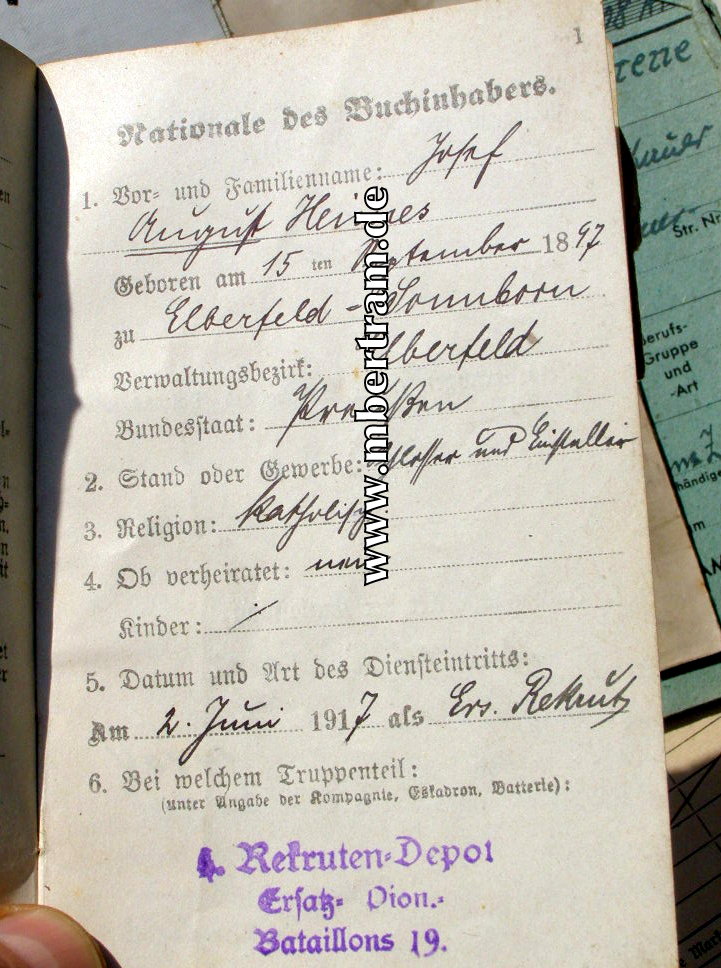 1
Nationale des Buchinhabers.
1. Vor- und Familienname: Josef
August Heimes
Geboren am 15 ten September 1897
zu Elberfeld - Sonnborn
Verwaltungsbezirk: Elberfeld
Bundesstaat: Preußen
2. Stand oder Gewerbe: Schlosser und
3. Religion: katholisch
4. Ob verheiratet: nein
Kinder: /
5. Datum und Art des Diensteintritts:
Am 2. Juni 1917 als Ers. Rekrut
6. Bei welchem Truppenteil:
(unter Angabe der Kompagnie, Eskadron, Batterie):
4. Rekruten-Depot
Ersatz- Pion.-
Bataillons 19.
www.mbertram.de
Str. Nr
Berufs-
Gruppe
und
-Art